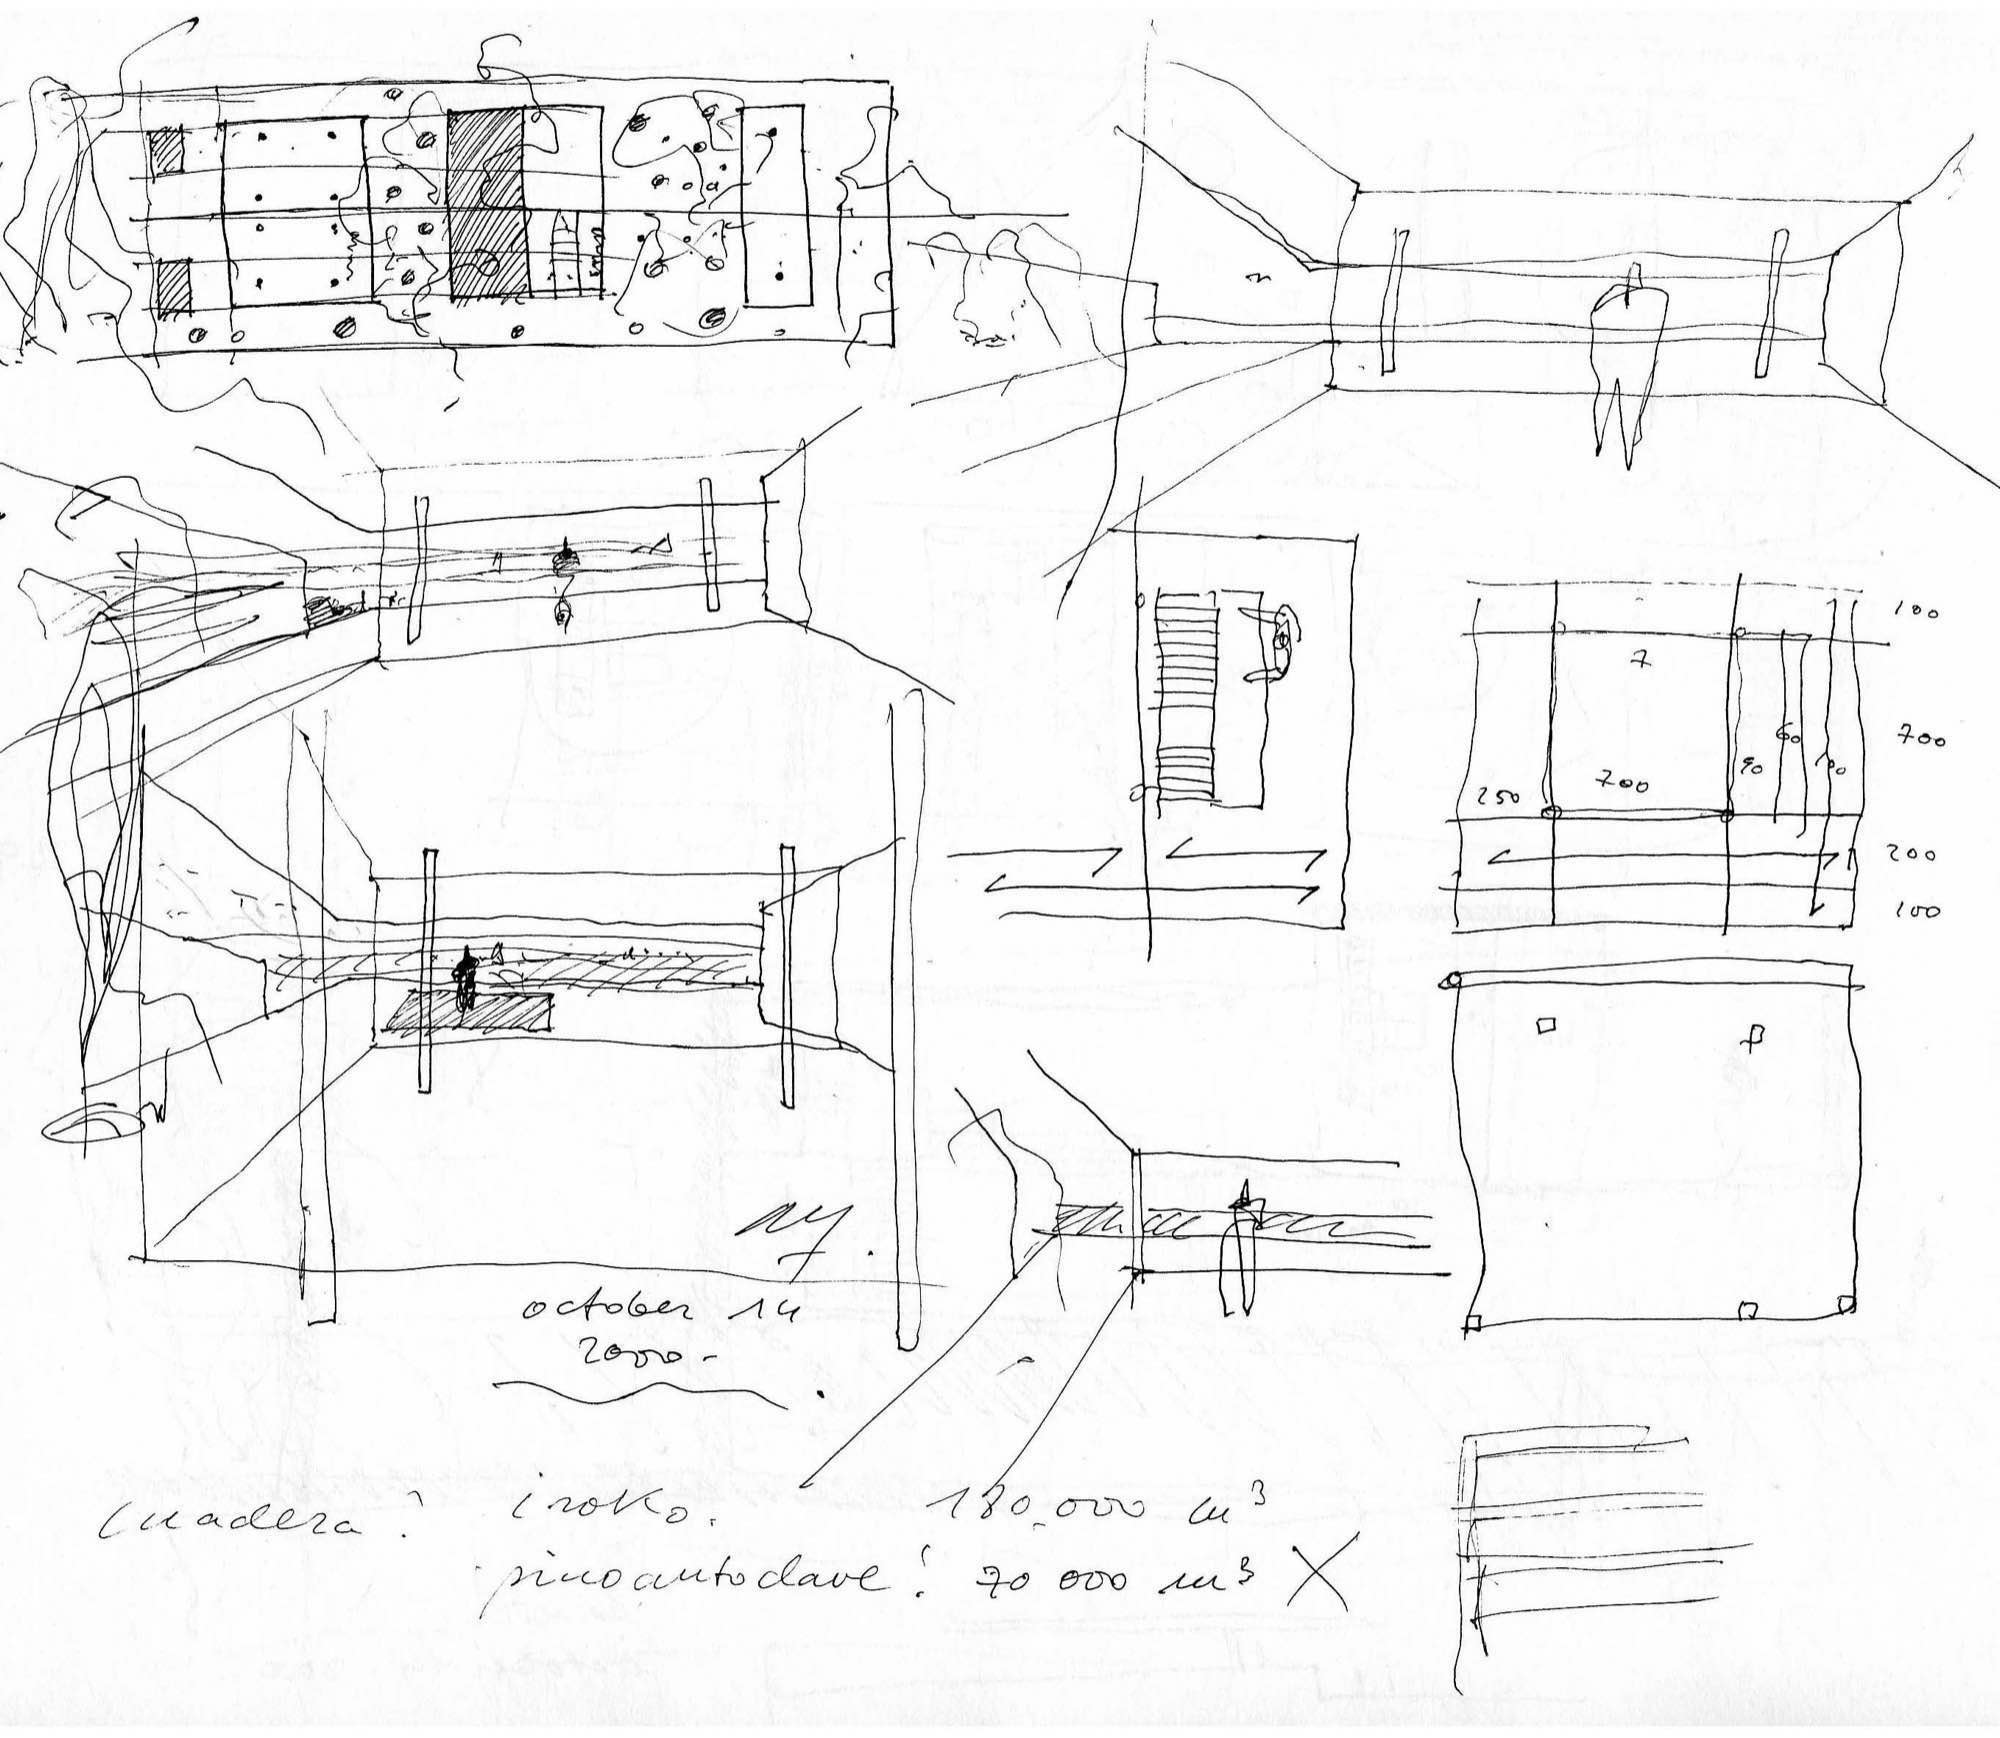 100
7
700
60
90
100
250
700
200
100
october 14
2000-
madera? iroko. 180.000 m³
pino autoclave! 70 000 m³ X